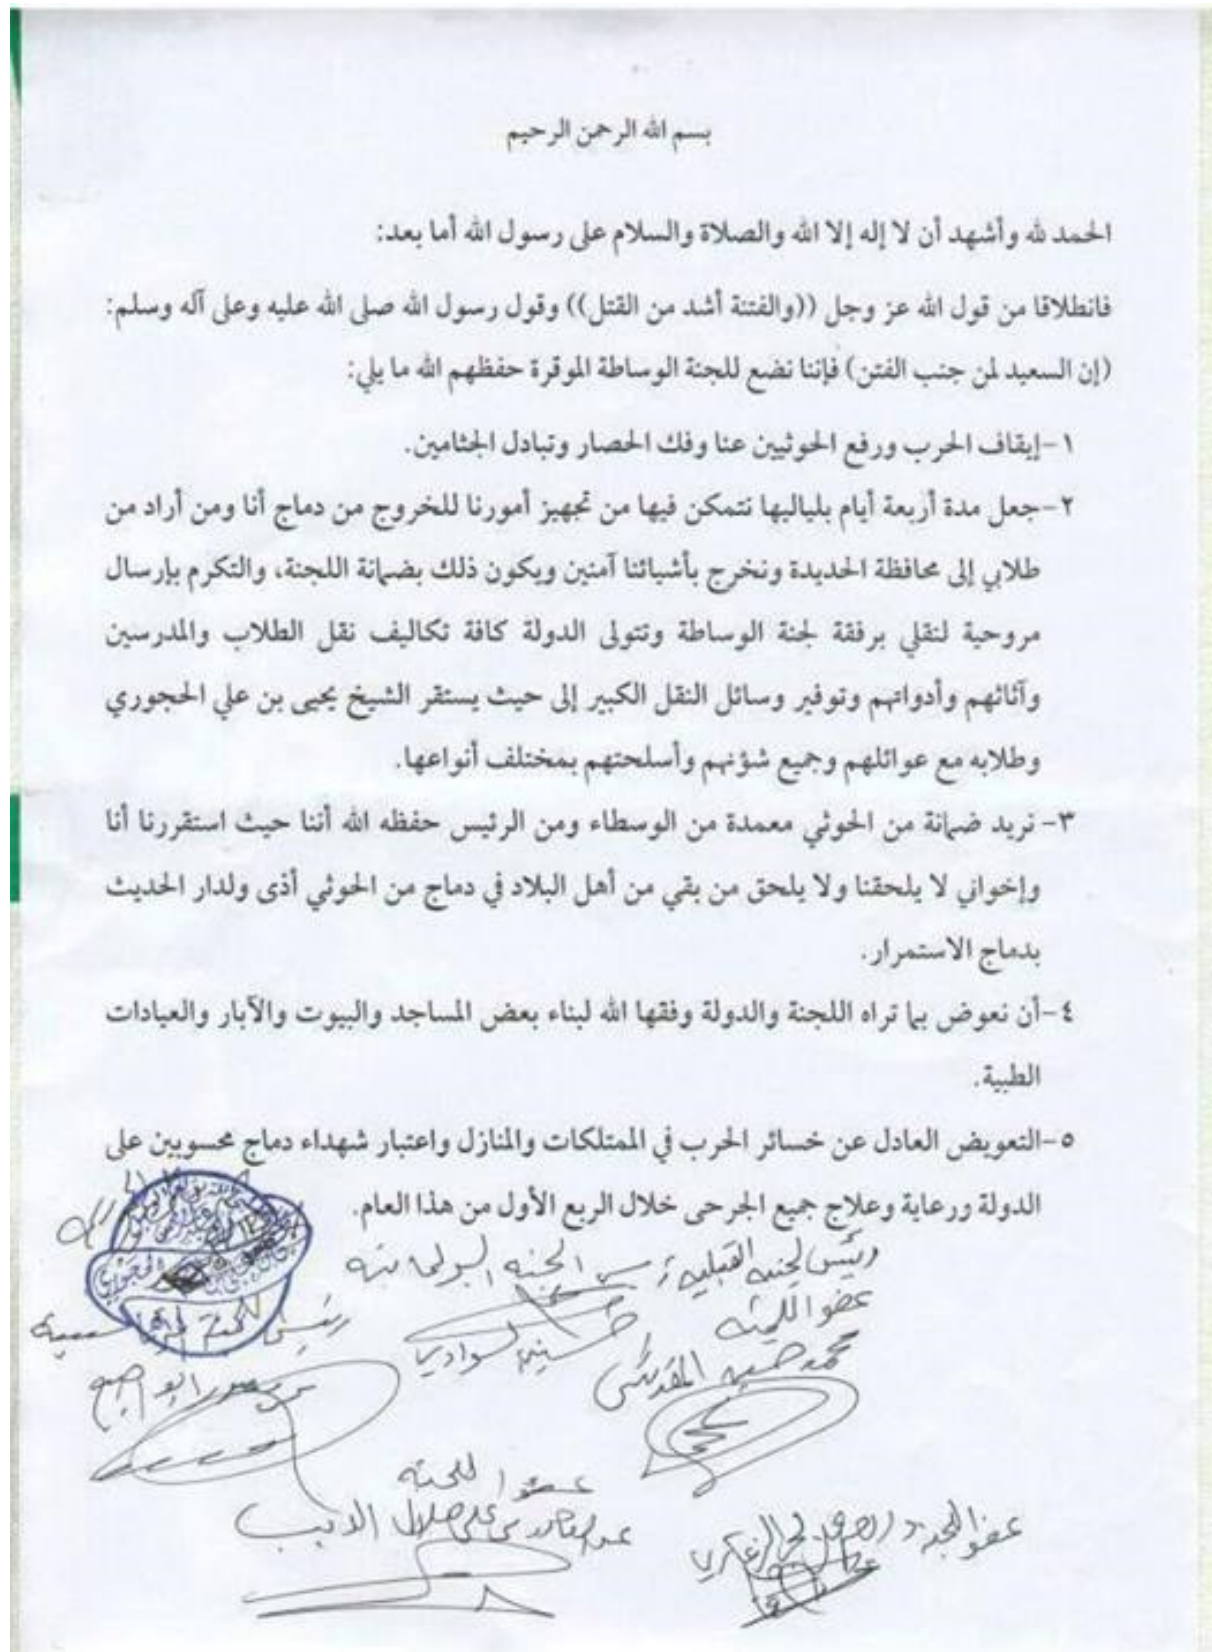 بسم الله الرحمن الرحيم
الحمد لله وأشهد أن لا إله إلا الله والصلاة والسلام على رسول الله أما بعد:
فانطلاقا من قول الله عز وجل ((والفتنة أشد من القتل)) وقول رسول الله صلى الله عليه وعلى آله وسلم:
(إن السعيد لمن جنب الفتن) فإننا نضع للجنة الوساطة الموقرة حفظهم الله ما يلي:
١-إيقاف الحرب ورفع الحوثيين عنا وفك الحصار وتبادل الجثامين.
٢-جعل مدة أربعة أيام بلياليها نتمكن فيها من تجهيز أمورنا للخروج من دماج أنا ومن أراد من
طلابي إلى محافظة الحديدة ونخرج بأشيائنا آمنين ويكون ذلك بضمانة اللجنة، والتكرم بإرسال
مروحية لنقلي برفقة لجنة الوساطة وتتولى الدولة كافة تكاليف نقل الطلاب والمدرسين
وآثاثهم وأدواتهم وتوفير وسائل النقل الكبير إلى حيث يستقر الشيخ يحيى بن علي الحجوري
وطلابه مع عوائلهم وجميع شؤنهم وأسلحتهم بمختلف أنواعها.
٣- نريد ضمانة من الحوثي معمدة من الوسطاء ومن الرئيس حفظه الله أننا حيث استقررنا أنا
وإخواني لا يلحقنا ولا يلحق من بقي من أهل البلاد في دماج من الحوثي أذى ولدار الحديث
بدماج الاستمرار.
٤-أن نعوض بما تراه اللجنة والدولة وفقها الله لبناء بعض المساجد والبيوت والآبار والعيادات
الطبية.
٥-التعويض العادل عن خسائر الحرب في الممتلكات والمنازل واعتبار شهداء دماج محسوبين على
الدولة ورعاية وعلاج جميع الجرحى خلال الربع الأول من هذا العام.
رئيس لجنة القبلية
عضو اللجنة
محمد حسين المقدشي
عضو اللجنة
عضو اللجنة